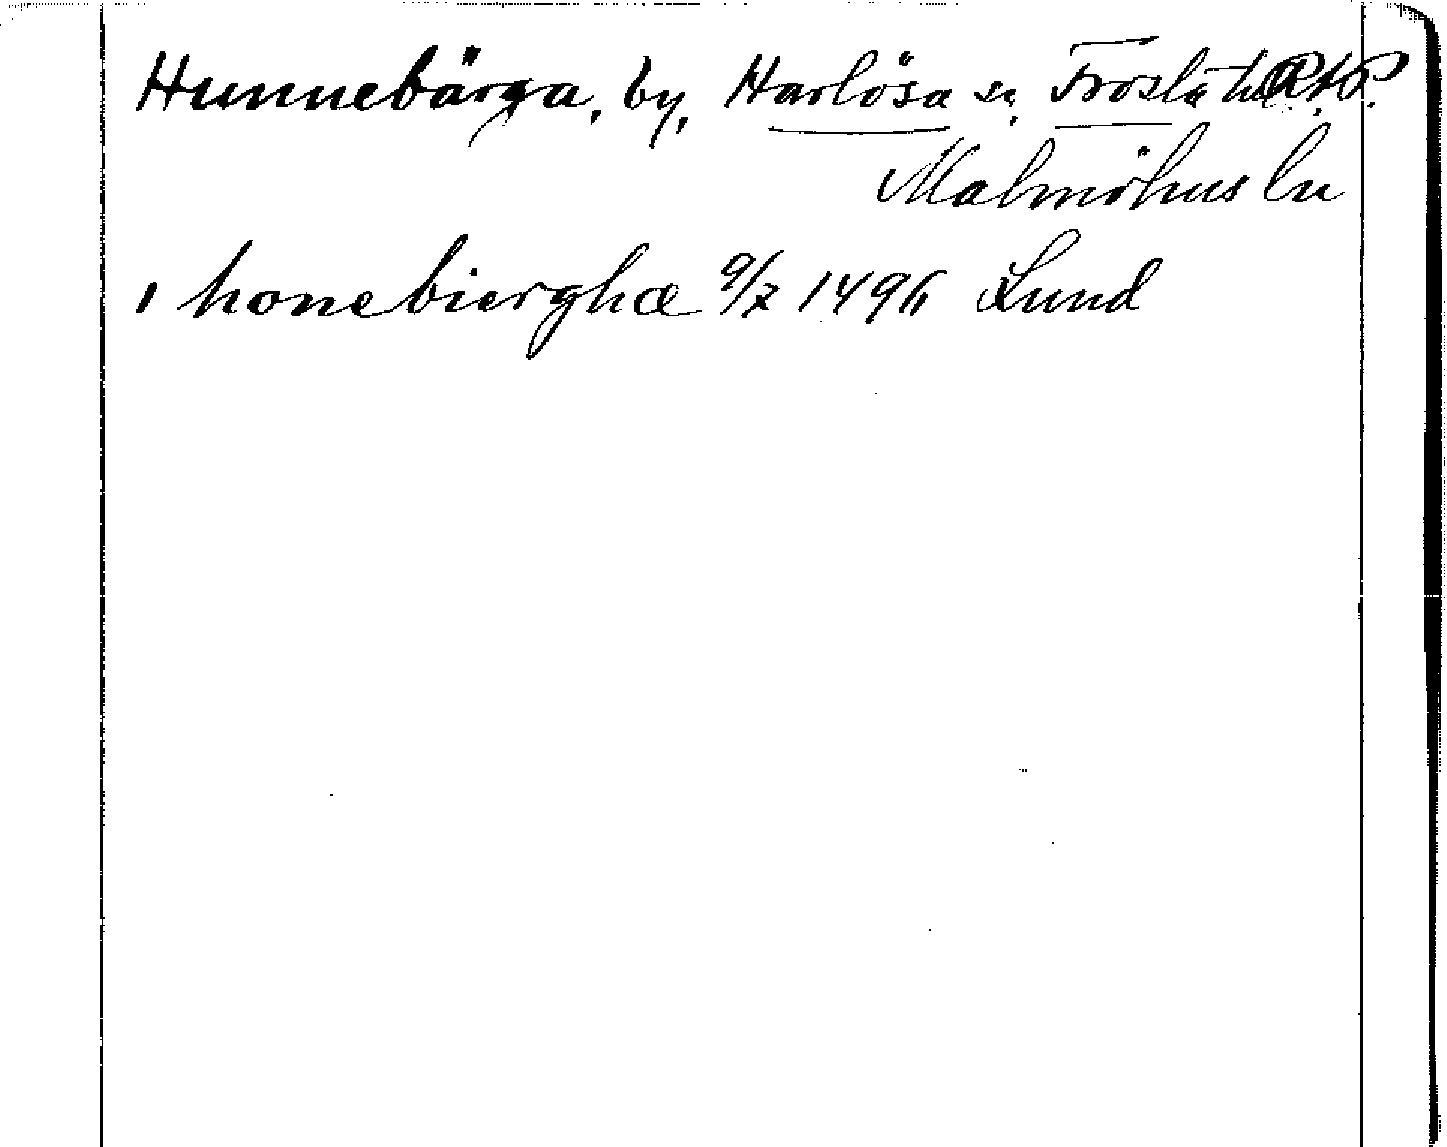 Hunnebärga, by, Harlösa sn, Frosta hd
Malmöhus ln
i honebierghæ 9/2 1496 Lund